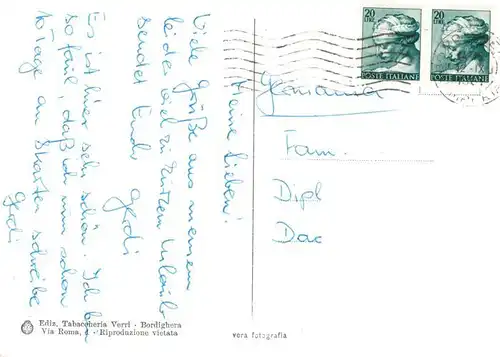 Meine Lieben!
Viele Grüße aus meinem
leider viel zu kurzen Urlaub
sendet Euch Gerdi
Es ist hier sehr schön. Ich bin
so faul, daß ich nun schon
Tage an Karten schreibe
Gerdi
20
LIRE
POSTE ITALIANE
20
LIRE
POSTE ITALIANE
Germania
Fam.
Dipl
Dac
Ediz. Tabaccheria Verri - Bordighera
Via Roma, - Riproduzione vietata
vera fotografia